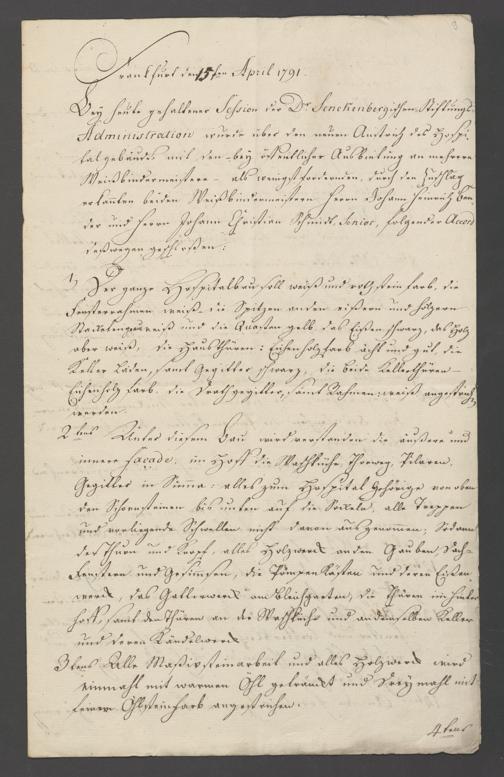 3
Frankfurt den 15ten April 1791.
Bey heute gehaltener Session der Dr Senckenbergischen Stiftungs
Administration wurde über den neuen Anstrich des Hospi
talgebäudes mit den bey öffentlicher Ausbietung an mehrere
Weißbindermeistere als wenigstfordernden, durch den Zuschlag
erkanten beiden Weißbindermeistern Herrn Johann Heinrich
der und Herrn Johann Christian Schmidt Senior, folgender Accord
deßwegen geschloßen:
1) Der ganze Hospitalbau soll weiß und roth stein farb, die
Fensterrahmen weiß, die Spitzen an den eißern und hölzern
weiß und die Quasten gelb, das Eißen schwarz, das Holz
aber weiß, die Hausthüren: Eichenholzfarb ächt und gut, die
Keller Läden, samt Gegitter schwarz, die beide Kellerthüren
Eichenholz farb. die Drathgegitter, samt Rahmen: weiß angestrichen
werden.
2tens Unter diesem Bau wird verstanden die äußere und
innere façade, im Hoff die Waschküche, Thorweg, Pilaren,
Gegitter in Summa: alles zum Hospital Gehörige von oben
den Schornsteinen bis unten auf die Sockeln, alle Treppen
und vorliegende Schwellen nicht davon ausgenomen; Sodann
der Thurn und Knopf, alles Holzwerck an den Gauben, Dach-
Fenstern und Gesimsen, die Pompenkästen und deren Eißen
werck, das Gatterwerck am Bleichgarten, die Thüren im Hinter
hoff, samt den Thüren an der Waschküche und an demselben Keller
und deren Kändelwerck
3tens Alle Massivsteinarbeit und alles Holzwerck wird
einmahl mit warmen Öhl getränckt und dreymahl mit
Öhlsteinfarb angestrichen.
4tens